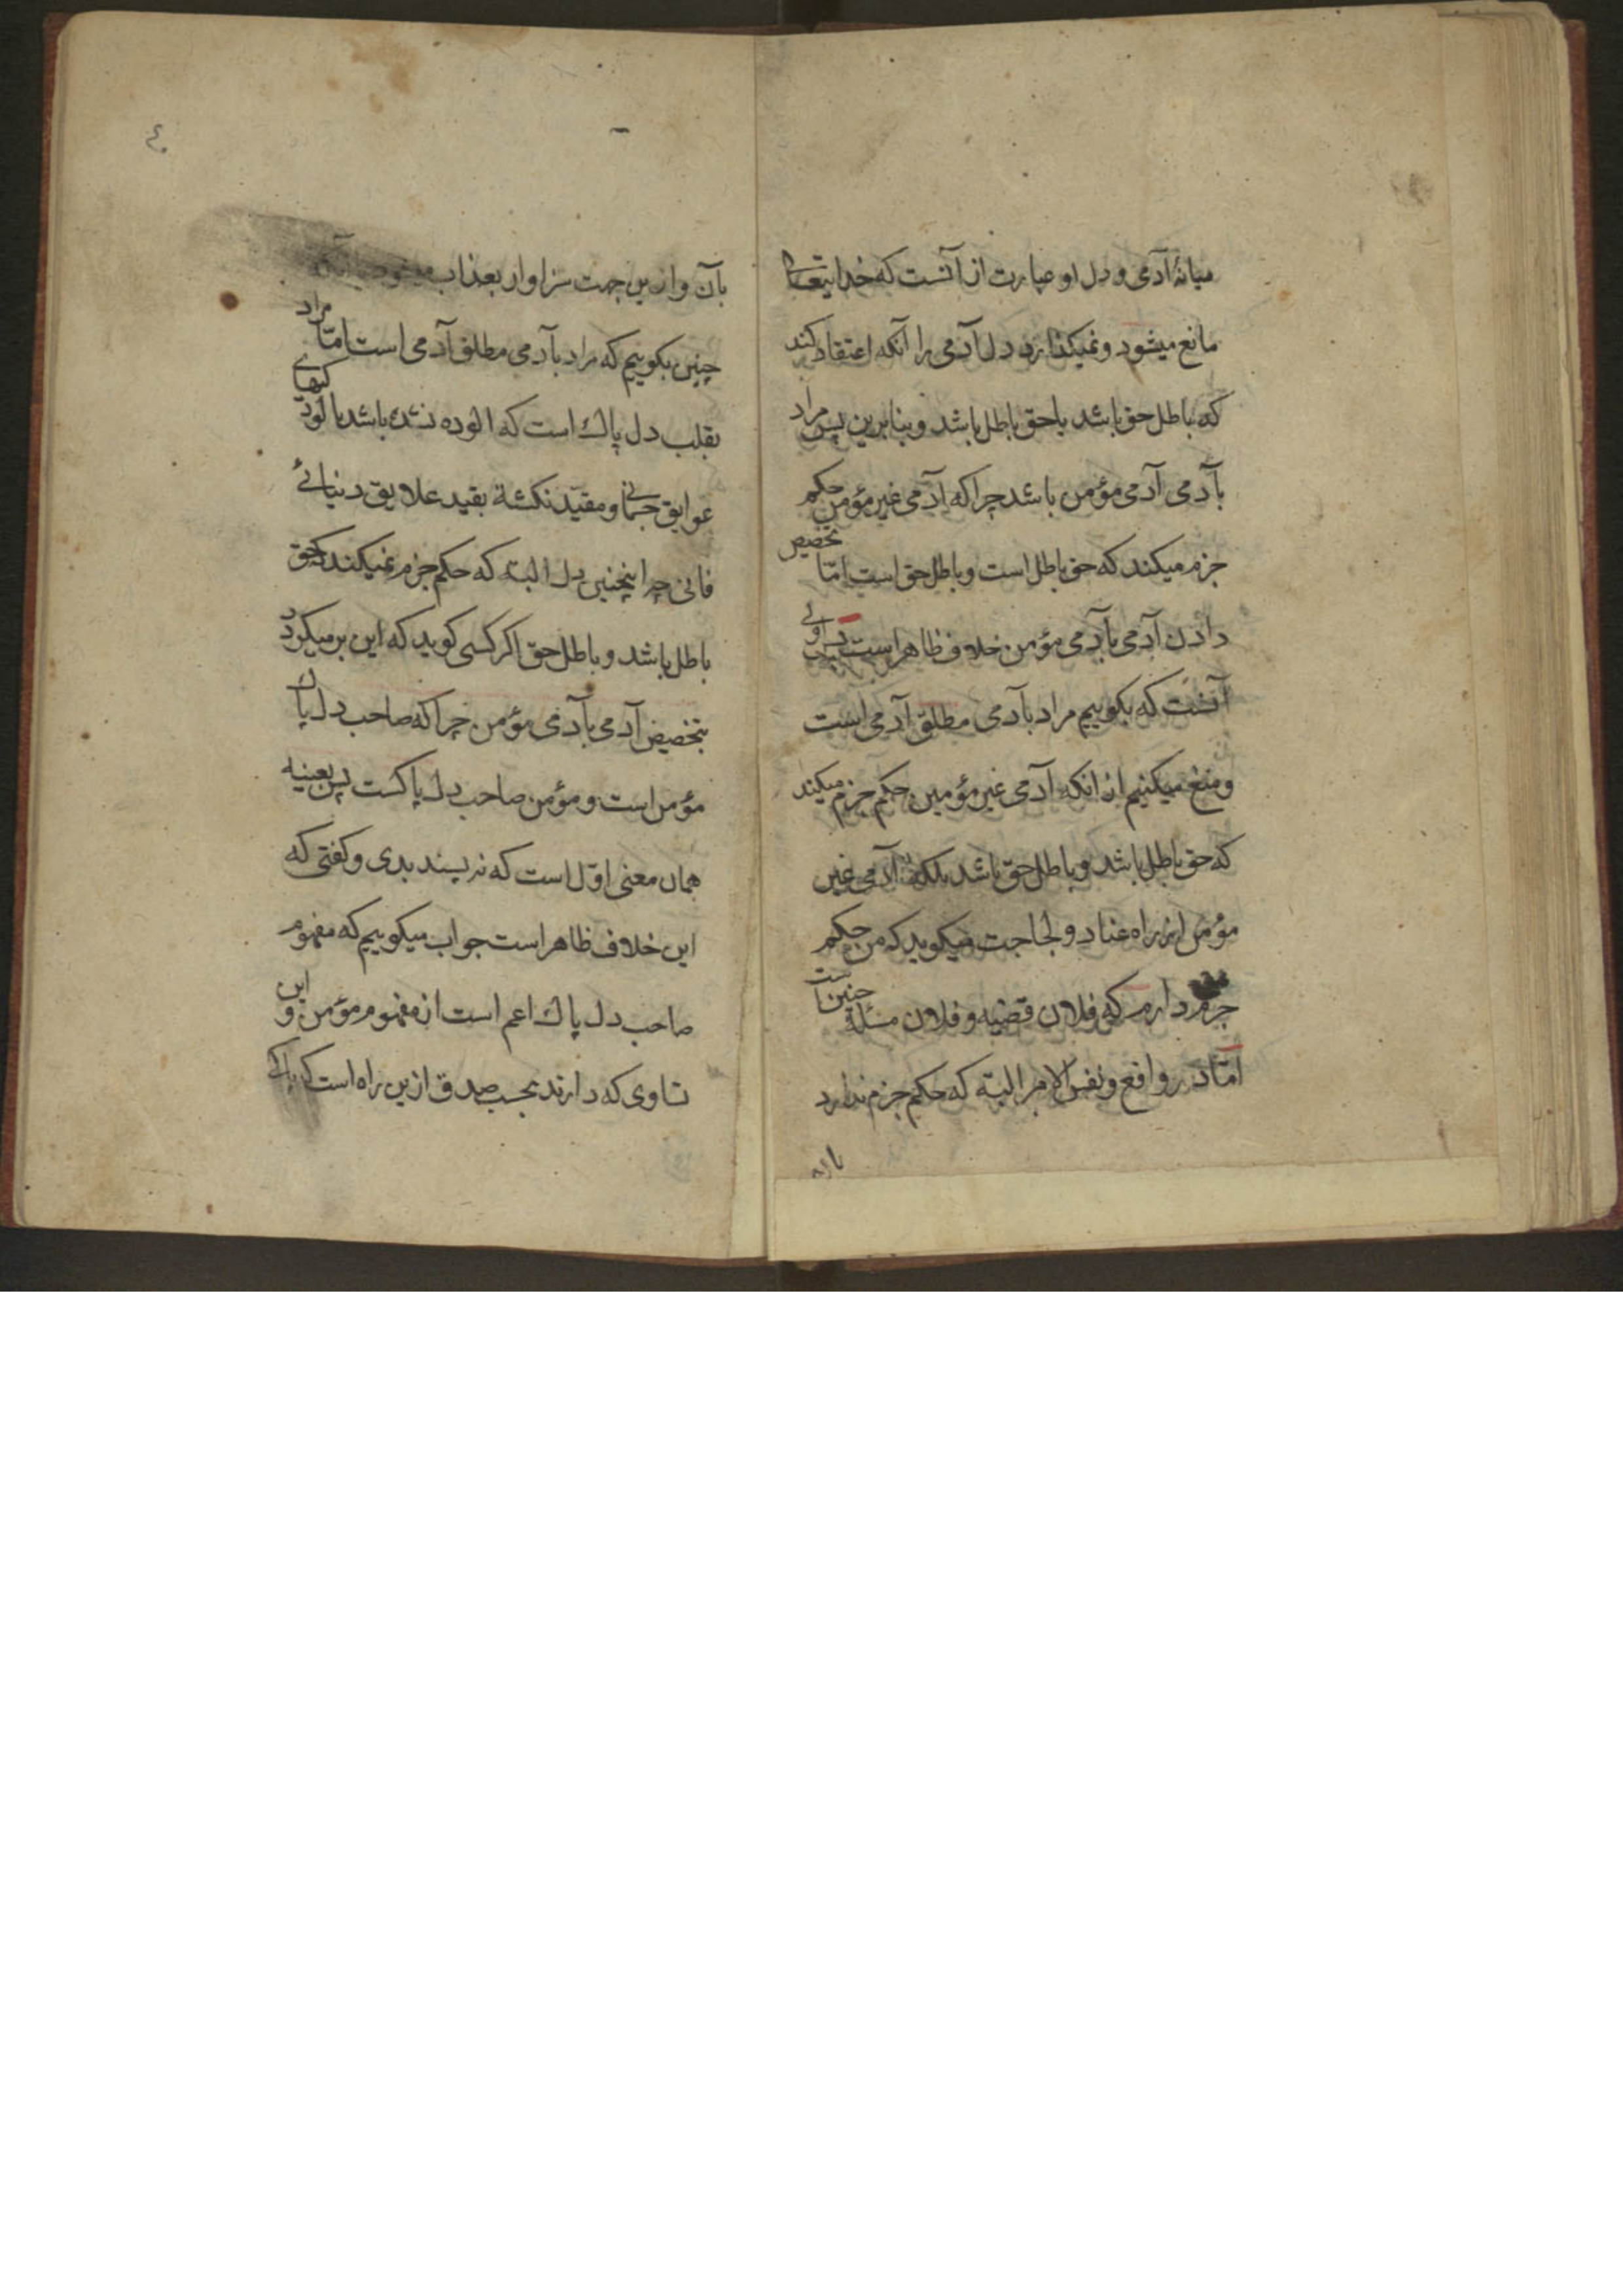 میانهٔ آدمی و دل او عبارت از آنست که خدایتعالی
مانع میشود و نمیکذارد دل آدمی را آنکه اعتقاد کند
که باطل حق باشد یا حق باطل باشد و بنابرین پس مراد
بآدمی آدمی مؤمن باشد چرا که آدمی غیر مؤمن حکم
جزم میکند که حق باطل است و باطل حق است امّا تخصیص
دادن آدمی بآدمی مؤمن خلاف ظاهر است پس
آنست که بکوییم مراد بآدمی مطلق آدمی است
و منع میکنیم از انکه آدمی غیر مؤمن حکم جزم میکند
که حق باطل باشد و باطل حق باشد بلکه آدمی غیر
مؤمن از راه عناد و لجاجت میکوید که من حکم
جزم دارم که فلان قضیه و فلان مسئله چنین است
امّا در واقع و نفس الامر البته که حکم جزم ندارد
بآن
٤٠
بآن و ازین جهت سزاوار بعذاب میشود یا آنکه
چنین بکوییم که مراد بآدمی مطلق آدمی است امّا مراد
بقلب دل پاک است که الوده نشده باشد بالودکیهای
عوایق جسمانی و مقیّد نکشته بقید علایق دنیائی
فانی چرا اینچنین دل البته که حکم جزم نمیکند که حق
باطل باشد و باطل حق اکر کسی کوید که این برمیکردد
بتخصیص آدمی بآدمی مؤمن چرا که صاحب دل پاک
مؤمن است و مؤمن صاحب دل پاکست پس بعینه
همان معنی اوّل است که نپسندیدی و کفتی که
این خلاف ظاهر است جواب میکوییم که مفهوم
صاحب دل پاک اعم است از مفهوم مؤمن و این
تساوی که دارند بحسب صدق ازین راه است که پاک